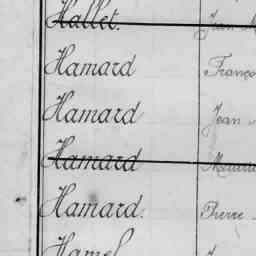 Hallet. Jean
Hamard Franço
Hamard Jean
Hamard Mauri
Hamard. Pierre
Hamel